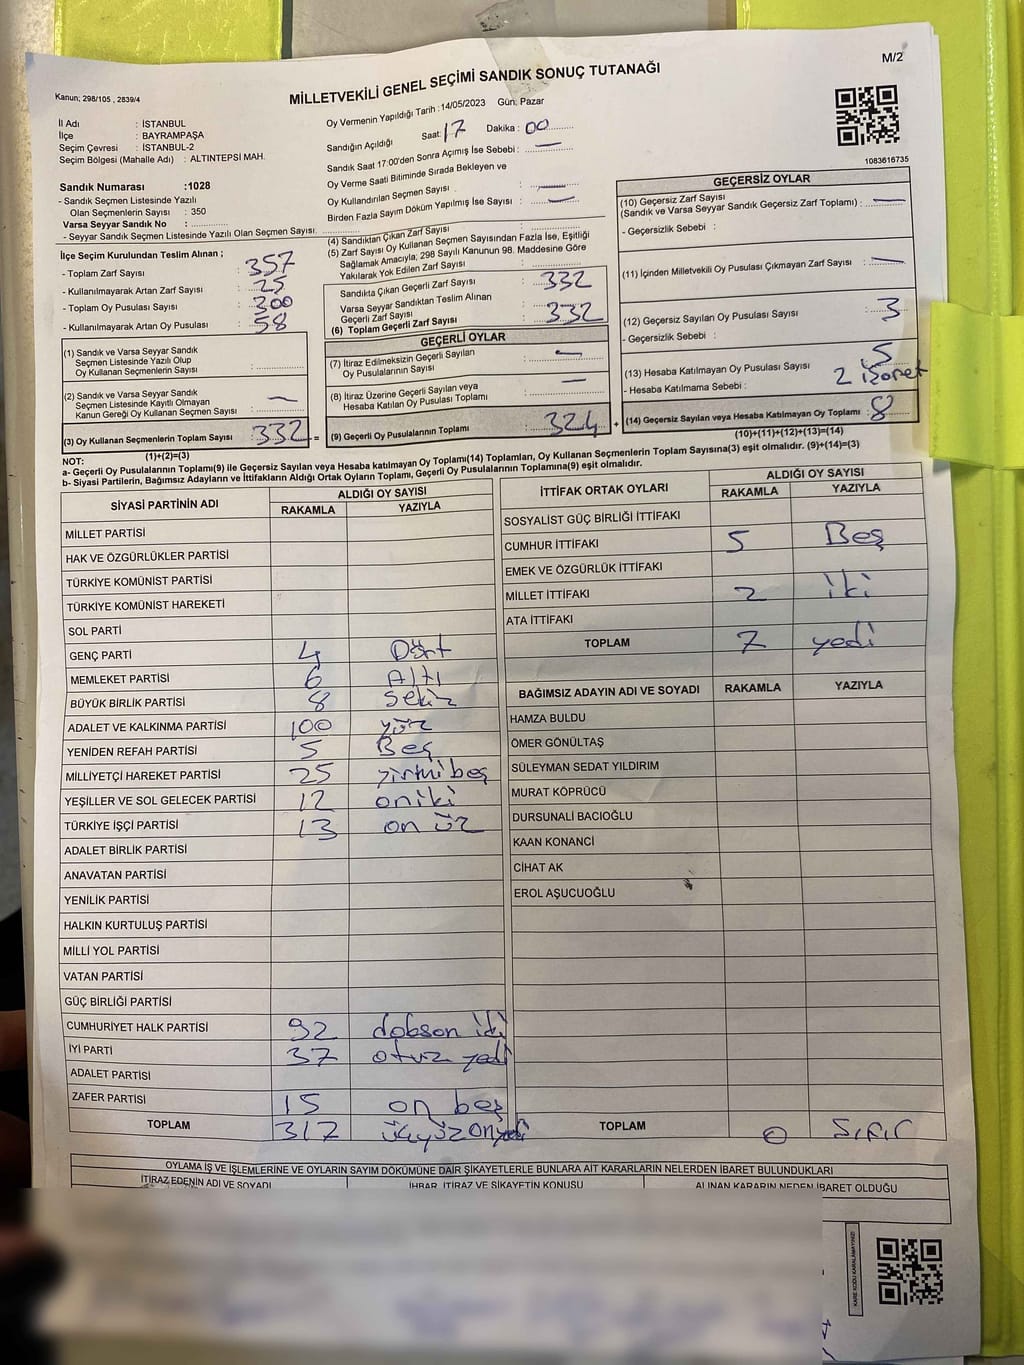 M/2
Kanun; 298/105 , 2839/4
MİLLETVEKİLİ GENEL SEÇİMİ SANDIK SONUÇ TUTANAĞI
İl Adı : İSTANBUL
İlçe : BAYRAMPAŞA
Seçim Çevresi : İSTANBUL-2
Seçim Bölgesi (Mahalle Adı) : ALTINTEPSİ MAH.
Sandık Numarası :1028
- Sandık Seçmen Listesinde Yazılı
Olan Seçmenlerin Sayısı : 350
Varsa Seyyar Sandık No :
- Seyyar Sandık Seçmen Listesinde Yazılı Olan Seçmen Sayısı:
İlçe Seçim Kurulundan Teslim Alınan ;
- Toplam Zarf Sayısı : 357
- Kullanılmayarak Artan Zarf Sayısı : 25
- Toplam Oy Pusulası Sayısı : 300
- Kullanılmayarak Artan Oy Pusulası : 58
(1) Sandık ve Varsa Seyyar Sandık
Seçmen Listesinde Yazılı Olup
Oy Kullanan Seçmenlerin Sayısı :
(2) Sandık ve Varsa Seyyar Sandık
Seçmen Listesinde Kayıtlı Olmayan
Kanun Gereği Oy Kullanan Seçmen Sayısı : —
(3) Oy Kullanan Seçmenlerin Toplam Sayısı : 332 =
(1)+(2)=(3)
Oy Vermenin Yapıldığı Tarih :14/05/2023 Gün: Pazar
Sandığın Açıldığı Saat: 17 Dakika : 00
Sandık Saat 17:00'den Sonra Açımış İse Sebebi : —
Oy Verme Saati Bitiminde Sırada Bekleyen ve
Oy Kullandırılan Seçmen Sayısı : —
Birden Fazla Sayım Döküm Yapılmış İse Sayısı : —
(4) Sandıktan Çıkan Zarf Sayısı :
(5) Zarf Sayısı Oy Kullanan Seçmen Sayısından Fazla İse, Eşitliği
Sağlamak Amacıyla; 298 Sayılı Kanunun 98. Maddesine Göre
Yakılarak Yok Edilen Zarf Sayısı :
Sandıkta Çıkan Geçerli Zarf Sayısı : 332
Varsa Seyyar Sandıktan Teslim Alınan
Geçerli Zarf Sayısı :
(6) Toplam Geçerli Zarf Sayısı : 332
GEÇERLİ OYLAR
(7) İtiraz Edilmeksizin Geçerli Sayılan
Oy Pusulalarının Sayısı : —
(8) İtiraz Üzerine Geçerli Sayılan veya
Hesaba Katılan Oy Pusulası Toplamı : —
(9) Geçerli Oy Pusulalarının Toplamı : 324 +
1083616735
GEÇERSİZ OYLAR
(10) Geçersiz Zarf Sayısı
(Sandık ve Varsa Seyyar Sandık Geçersiz Zarf Toplamı) : —
- Geçersizlik Sebebi :
(11) İçinden Milletvekili Oy Pusulası Çıkmayan Zarf Sayısı : —
(12) Geçersiz Sayılan Oy Pusulası Sayısı : 3
- Geçersizlik Sebebi :
(13) Hesaba Katılmayan Oy Pusulası Sayısı : 5
- Hesaba Katılmama Sebebi : 2 işaret
(14) Geçersiz Sayılan veya Hesaba Katılmayan Oy Toplamı : 8
(10)+(11)+(12)+(13)=(14)
NOT:
a- Geçerli Oy Pusulalarının Toplamı(9) ile Geçersiz Sayılan veya Hesaba katılmayan Oy Toplamı(14) Toplamları, Oy Kullanan Seçmenlerin Toplam Sayısına(3) eşit olmalıdır. (9)+(14)=(3)
b- Siyasi Partilerin, Bağımsız Adayların ve İttifakların Aldığı Ortak Oyların Toplamı, Geçerli Oy Pusulalarının Toplamına(9) eşit olmalıdır.
SİYASİ PARTİNİN ADI ALDIĞI OY SAYISI
RAKAMLA YAZIYLA
MİLLET PARTİSİ
HAK VE ÖZGÜRLÜKLER PARTİSİ
TÜRKİYE KOMÜNİST PARTİSİ
TÜRKİYE KOMÜNİST HAREKETİ
SOL PARTİ
GENÇ PARTİ 4 Dört
MEMLEKET PARTİSİ 6 Altı
BÜYÜK BİRLİK PARTİSİ 8 sekiz
ADALET VE KALKINMA PARTİSİ 100 yüz
YENİDEN REFAH PARTİSİ 5 Beş
MİLLİYETÇİ HAREKET PARTİSİ 25 yirmi beş
YEŞİLLER VE SOL GELECEK PARTİSİ 12 oniki
TÜRKİYE İŞÇİ PARTİSİ 13 on üz
ADALET BİRLİK PARTİSİ
ANAVATAN PARTİSİ
YENİLİK PARTİSİ
HALKIN KURTULUŞ PARTİSİ
MİLLİ YOL PARTİSİ
VATAN PARTİSİ
GÜÇ BİRLİĞİ PARTİSİ
CUMHURİYET HALK PARTİSİ 92 dobson iki
İYİ PARTİ 37 otuz yedi
ADALET PARTİSİ
ZAFER PARTİSİ 15 on beş
TOPLAM 317 üçyüzonyedi
İTTİFAK ORTAK OYLARI ALDIĞI OY SAYISI
RAKAMLA YAZIYLA
SOSYALİST GÜÇ BİRLİĞİ İTTİFAKI
CUMHUR İTTİFAKI 5 Beş
EMEK VE ÖZGÜRLÜK İTTİFAKI
MİLLET İTTİFAKI 2 iki
ATA İTTİFAKI
TOPLAM 7 yedi
BAĞIMSIZ ADAYIN ADI VE SOYADI RAKAMLA YAZIYLA
HAMZA BULDU
ÖMER GÖNÜLTAŞ
SÜLEYMAN SEDAT YILDIRIM
MURAT KÖPRÜCÜ
DURSUNALİ BACIOĞLU
KAAN KONANCİ
CİHAT AK
EROL AŞUCUOĞLU
TOPLAM 0 Sıfır
OYLAMA İŞ VE İŞLEMLERİNE VE OYLARIN SAYIM DÖKÜMÜNE DAİR ŞİKAYETLERLE BUNLARA AİT KARARLARIN NELERDEN İBARET BULUNDUKLARI
İTİRAZ EDENİN ADI VE SOYADI İHBAR, İTİRAZ VE ŞİKAYETİN KONUSU ALINAN KARARIN NEDEN İBARET OLDUĞU
KARE KODU KARALAMAYINIZ!